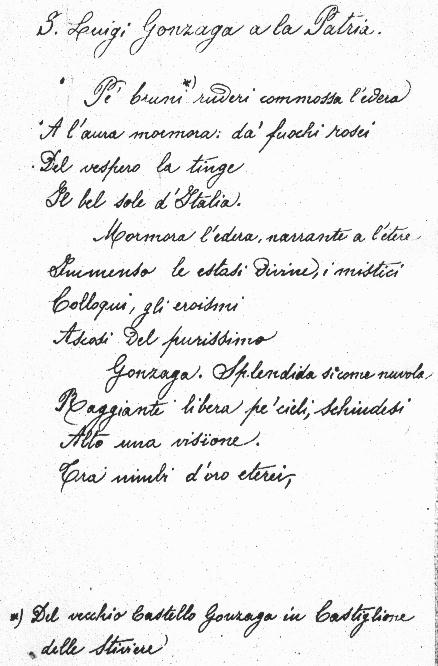 S. Luigi Gonzaga a la Patria.
Pe' bruni *) ruderi commossa l'edera
A l'aura mormora: da' fuochi rosei
Del vespero la tinge
Il bel sole d'Italia.
Mormora l'edera, narrante a l'étere
Immenso le estasi divine, i mistici
Colloqui, gli eroismi
Ascosi del purissimo
Gonzaga. Splendida siccome nuvola
Raggiante libera pe' cieli, schiudesi
Alto una visione.
Tra nimbi d'oro eterei,
*) Del vecchio Castello Gonzaga in Castiglione
delle Stiviere